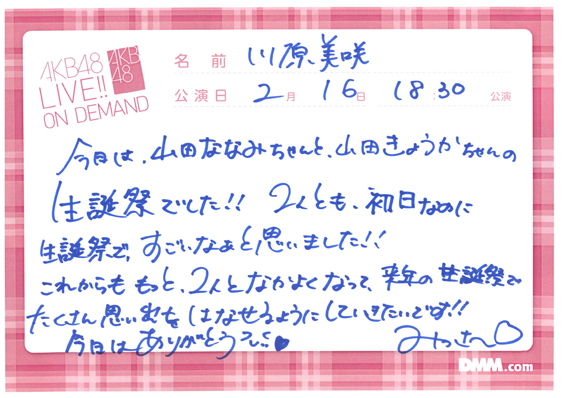 AKB48
LIVE!!
ON DEMAND
AKB
48
名前 川原美咲
公演日 2月 16日 18:30 公演
今日は、山田ななみちゃんと、山田きょうかちゃんの
生誕祭でした!! 2人とも、初日なのに
生誕祭で、すごいなぁと思いました!!
これからももっと、2人となかよくなって、来年の生誕祭で
たくさん思い出をはなせるようにしていきたいです!!
今日はありがとうございました♥
みっきー♡
DMM.com